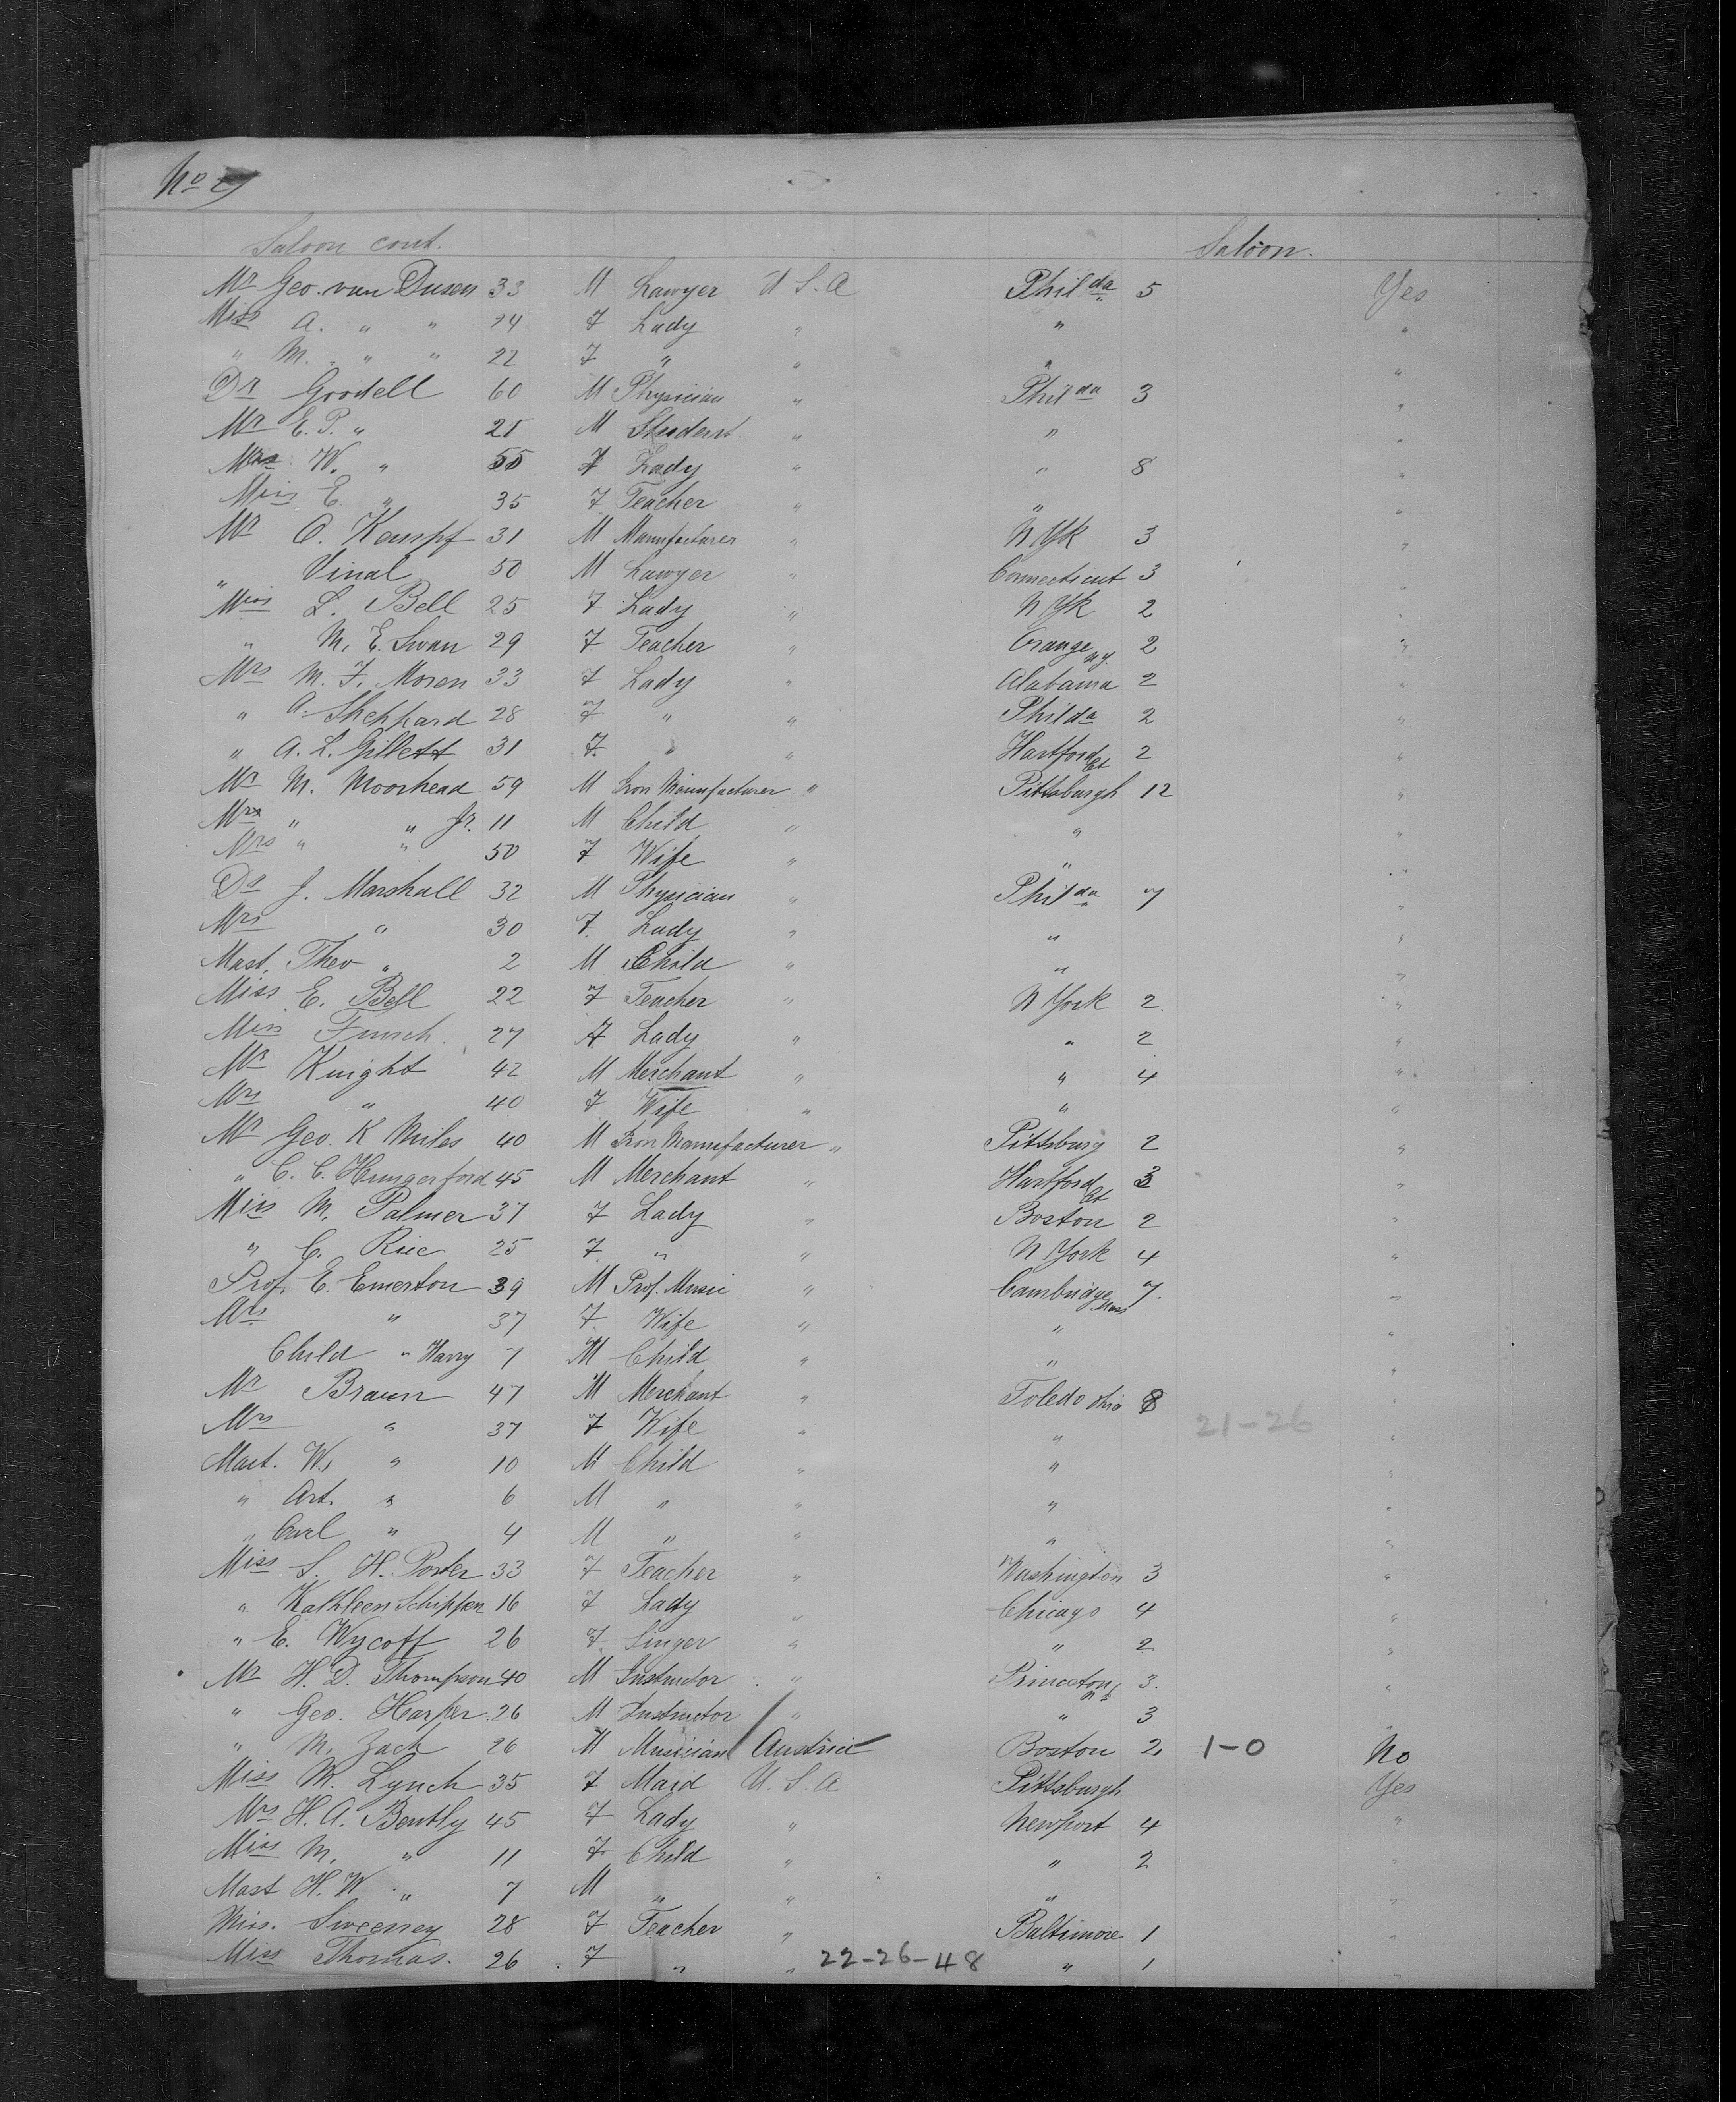 No 2
Saloon cont. Saloon.
Mr Geo. van Dusen 33 M Lawyer U S. A Philda 5 Yes
Miss A. " " 24 F Lady " " "
" M. " " 22 F " " " "
Dr Goodell 60 M Physician " Philda 3 "
Mr E. P. " 21 M Student " " "
Mrs W. " 55 F Lady " " 8 "
Miss E. " 35 F Teacher " " "
Mr O. Kampf 31 M Manufacturer " N Yk 3 "
" Vinal 50 M Lawyer " Connecticut 3 "
Miss L. Bell 25 F Lady " N Yk 2 "
" M. E. Swan 29 F Teacher " Orange N.J. 2 "
Mrs M. F. Moren 33 F Lady " Alabama 2 "
" A. Sheppard 28 F " " Philda 2 "
" A. L. Gillett 31 F. " " Hartford Ct 2 "
Mr M. Moorhead 59 M Iron Manufacturer " Pittsburgh 12 "
" " Jr. 11 M Child " " "
Mrs " " 50 F Wife " " "
Dr J. Marshall 32 M Physician " Philda 7 "
Mrs " 30 F. Lady " " "
Mast. Theo " 2 M Child " " "
Miss E. Bell 22 F Teacher " N York 2. "
Miss Funch. 27 F Lady " " 2 "
Mr Knight 42 M Merchant " " 4 "
Mrs " 40 F Wife " " "
Mr Geo. K Miles 40 M Iron Manufacturer " Pittsburg 2 "
" C. C. Hungerford 45 M Merchant " Hartford Ct 3 "
Miss M. Palmer 37 F Lady " Boston 2 "
" C. Rice 25 F. " " N York 4 "
Prof. E. Emerton 39 M Prof. Music " Cambridge Mass 7. "
Mrs " 37 F. Wife " " "
Child " Harry 7 M Child " " "
Mr Braun 47 M Merchant " Toledo Ohio 8 "
Mrs " 37 F Wife " " 21-26 "
Mast. W. " 10 M Child " " "
" Art. " 6 M " " " "
" Carl " 4 M " " " "
Miss S. H. Porter 33 F Teacher " Washington 3 "
" Kathleen Schippen 16 F Lady " Chicago 4 "
" E. Wycoff 26 F. Singer " " 2 "
Mr H. D. Thompson 40 M Instructor " Princeton N J 3. "
" Geo. Harper. 26 M Instructor " " 3 "
" M. Zach 26 M Musician Austria Boston 2. 1-0 No
Miss M. Lynch 35 F Maid U. S. A Pittsburgh Yes
Mrs H. A. Bently 45 F Lady " Newport 4 "
Miss M. " 11 F Child " " 2 "
Mast H. W. " 7 M " " " "
Miss. Sweeney 28 F Teacher " Baltimore 1 "
Miss Thomas. 26 F " " 22-26-48 " 1 "